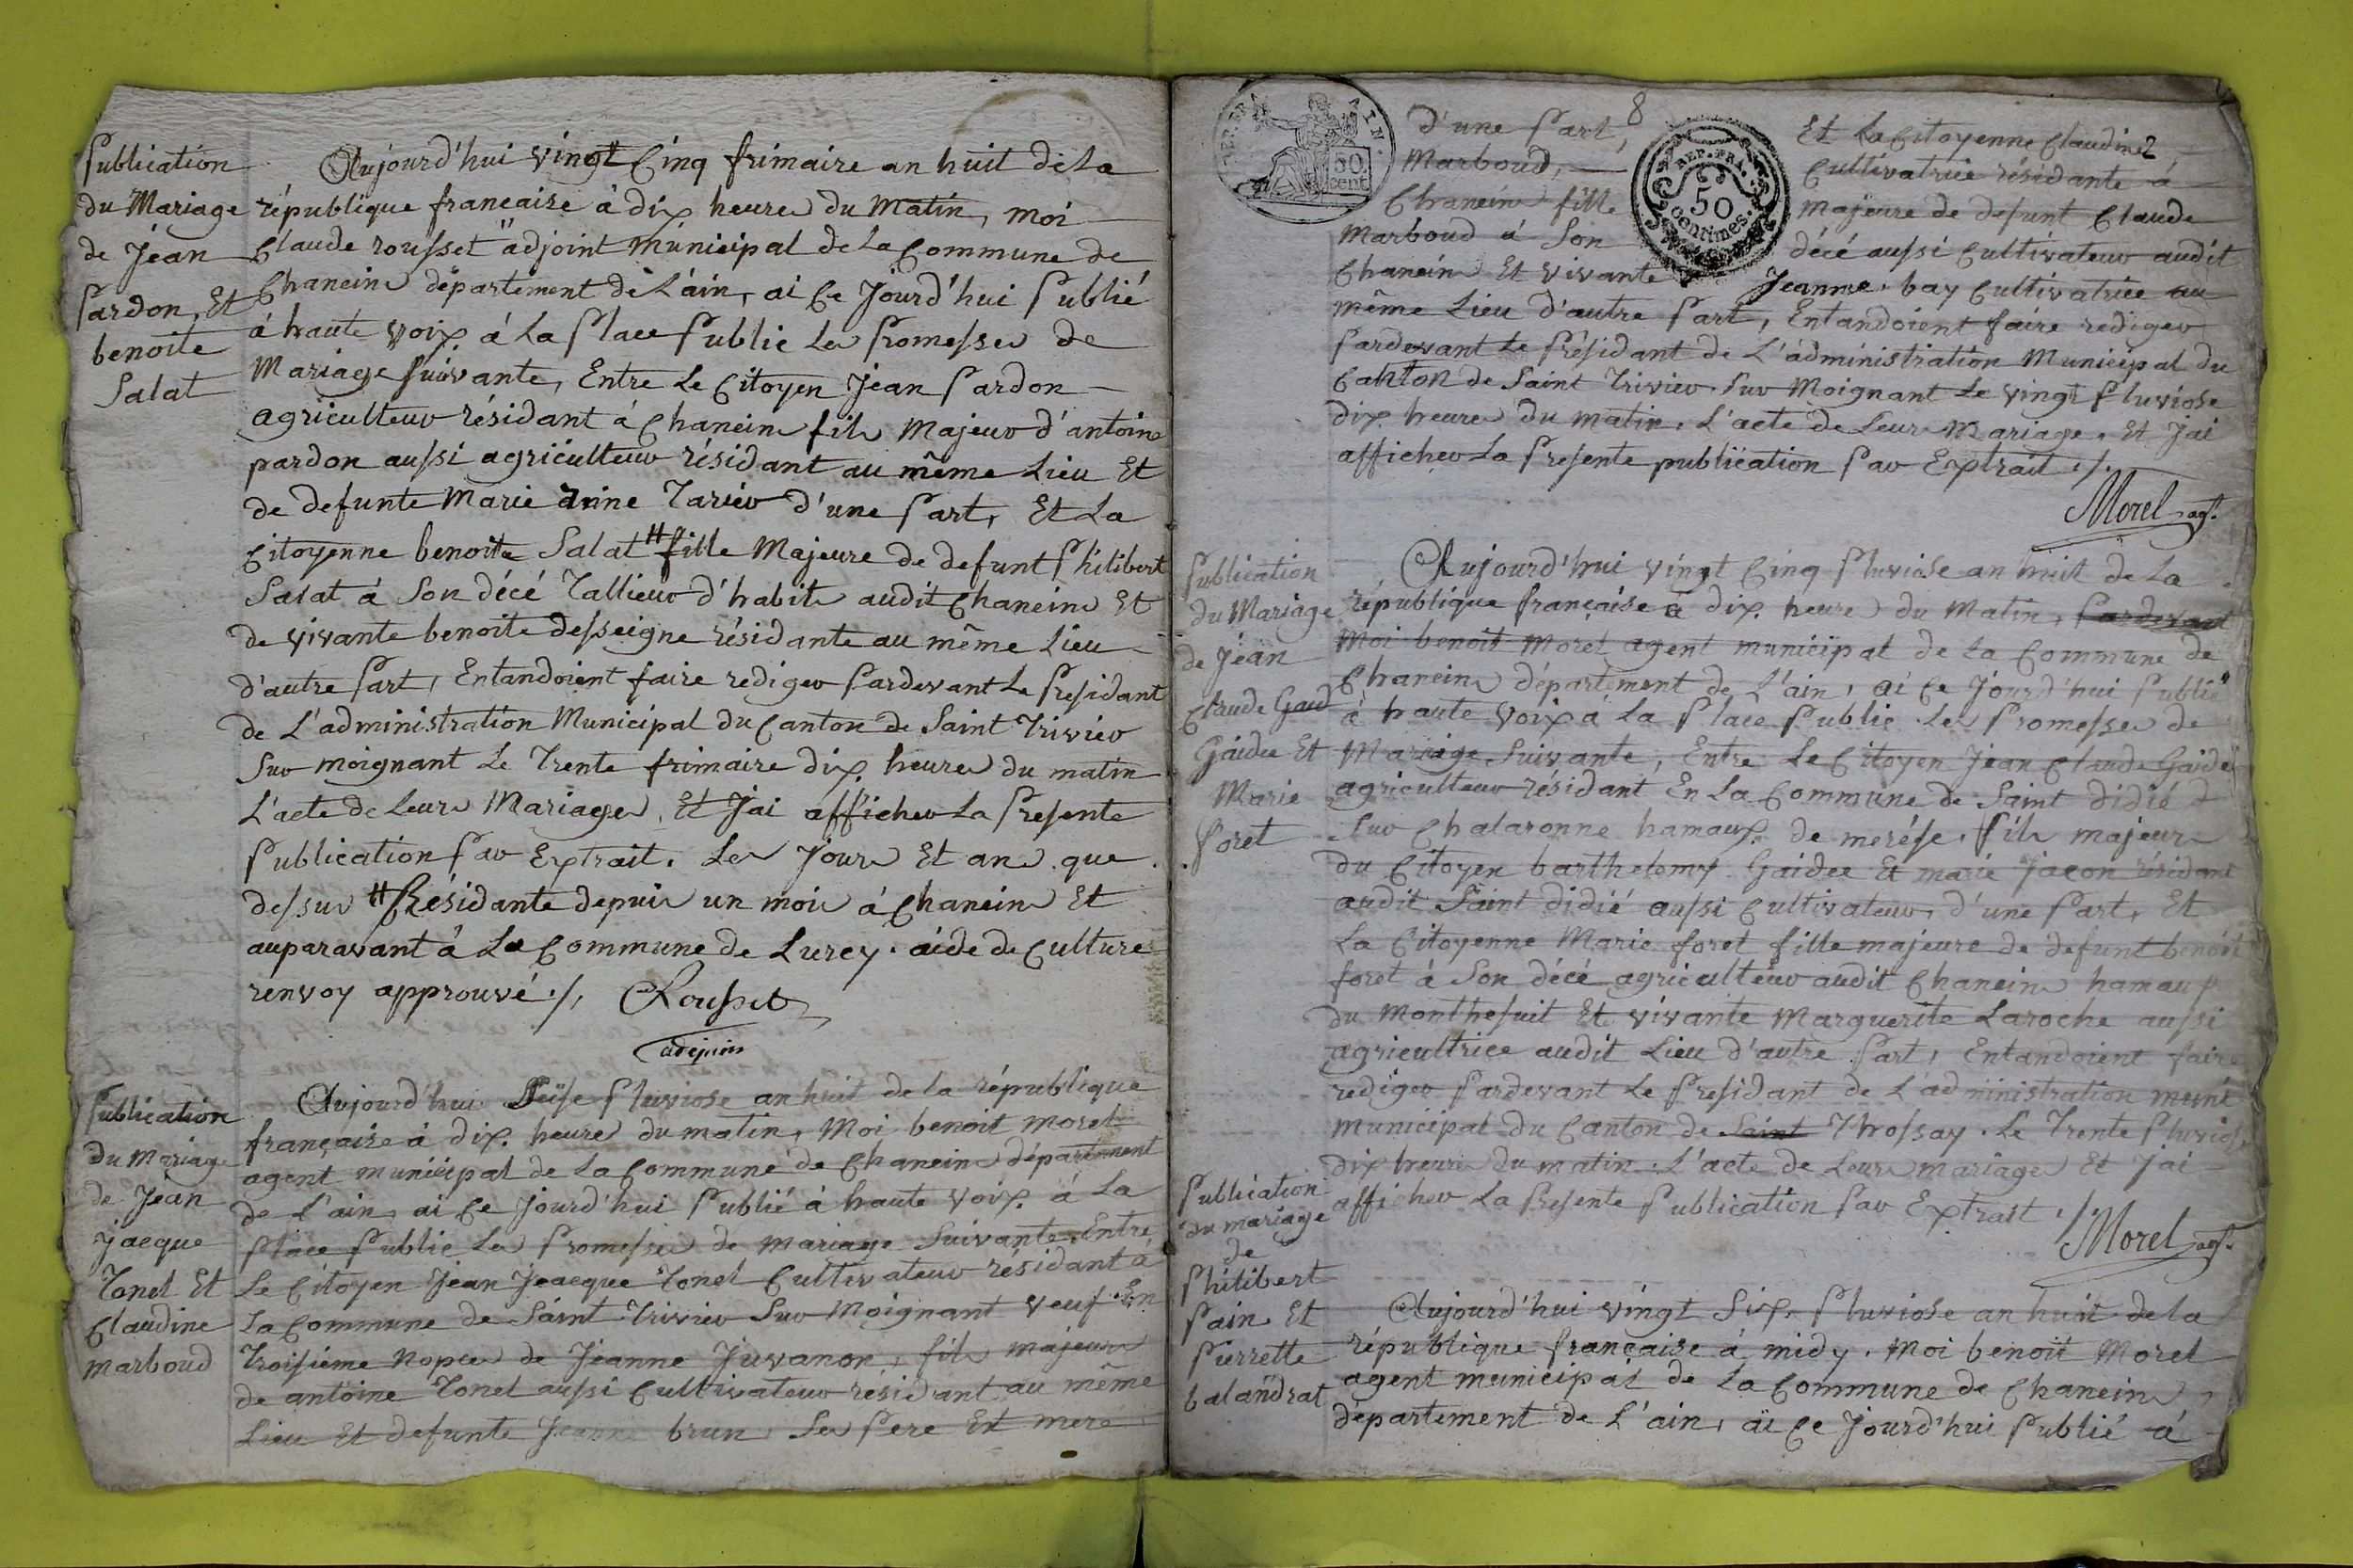 Publication
du Mariage
de Jean
Pardon, Et
benoite
Salat
Aujourd'hui vingt Cinq frimaire an huit de La
république francaise à dix heures du Matin, moi
Claude rousset adjoint municipal de La Commune de
Chaneins département de L'ain, ai Ce Jourd'hui Publié
à haute voix à La Place Public Les Promesses de
Mariage Suivante, Entre Le Citoyen Jean Pardon
agriculteur résidant à Chaneins fils Majeur d'antoine
pardon aussi agriculteur résidant au même Lieu Et
de defunte Marie Anne Tariér d'une Part, Et La
Citoyenne benoite Salat # fille Majeure de defunt Philibert
Salat à Son décé Tallieur d'habits audit Chaneins Et
de vivante benoite desseigne résidante au même Lieu
d'autre Part, Entandoient faire rediger Pardevant Le Presidant
de L'administration Municipal du Canton de Saint Trivier
Sur moignant Le Trente frimaire dix heures du matin
L'acte de Leurs Mariages, Et J'ai afficher La Presente
Publication Par Extrait. Les Jours Et ans que
dessus # Résidante depuis un mois à Chaneins Et
auparavant à La Commune de Lurcy. aide de Culture
renvoy approuvé ./. Rousset
adejoins
Publication
du Mariage
de Jean
jacque
Tonel Et
Claudine
marboud
Aujourd'hui Seise Pluviose an huit de la république
française à dix heures du matin, Moi benoit morel
agent municipal de La Commune de Chaneins département
de L'ain, ai Ce Jourd'hui Publié à haute voix à La
Place Public Les Promesses de Mariage Suivante. Entre
Le Citoyen Jean Jeacque Tonel Cultivateur résidant à
La Commune de Saint Trivier Sur Moignant veuf En
Troisieme Nopces de Jeanne Juvanon, fils majeur
de antoine Tonel aussi Cultivateur résidant au même
Lieu Et defunte Jeanne brun Ses Pere Et mere
8
REP. FRA. 50 centimes.
50 cent
d'une Part, Et La Citoyenne Claudine
Marboud, Cultivatrice résidante à
Chaneins fille Majeure de defunt Claude
Marboud à Son décé aussi Cultivateur audit
Chaneins Et vivante Jeanne bay Cultivatrice au
même Lieu d'autre Part, Entandoient faire rediger
Pardevant Le Présidant de L'administration Municipal du
Canton de Saint Trivier Sur Moignant Le vingt Pluviose
dix heures du matin, L'acte de Leurs Mariage, Et J'ai
afficher La Presente publication Par Extrait ./.
Morel agt.
Publication
du Mariage
de Jean
Claude Gaud
Gaidee Et
Marie
foret
Aujourd'hui vingt Cinq Pluviose an huit de La
republique française à dix heures du Matin, Pardevant
Moi benoit Morel agent municipal de La Commune de
Chaneins département de L'ain, ai Ce Jourd'hui Publié
à haute voix à La Place Public Les Promesses de
Mariage Suivante, Entre Le Citoyen Jean Claude Gaidee
agriculteur résidant En La Commune de Saint didié
Sur Chalaronne hamaux de merése, fils majeur
du Citoyen barthelemy Gaidee Et marie jacon résidant
audit Saint didié aussi Cultivateur, d'une Part, Et
La Citoyenne Marie foret fille majeure de defunt benoit
foret à Son décé agriculteur audit Chaneins hamaux
du Monthesuit Et vivante Marguerite Laroche aussi
agricultrice audit Lieu d'autre Part, Entandoient faire
rediger Pardevant Le Presidant de L'administration muni
municipal du Canton de Saint Thossay. Le Trente Pluviose
dix heures du matin. L'acte de Leurs mariages Et J'ai
afficher La Presente Publication Par Extrait ./.
Morel agt.
Publication
du mariage
de
Philibert
Pain Et
Pierrette
balandrat
Aujourd'hui vingt Six Pluviose an huit de la
république française à midy. Moi benoit Morel
agent municipal de La Commune de Chaneins,
département de L'ain, ai Ce Jourd'hui Publié à